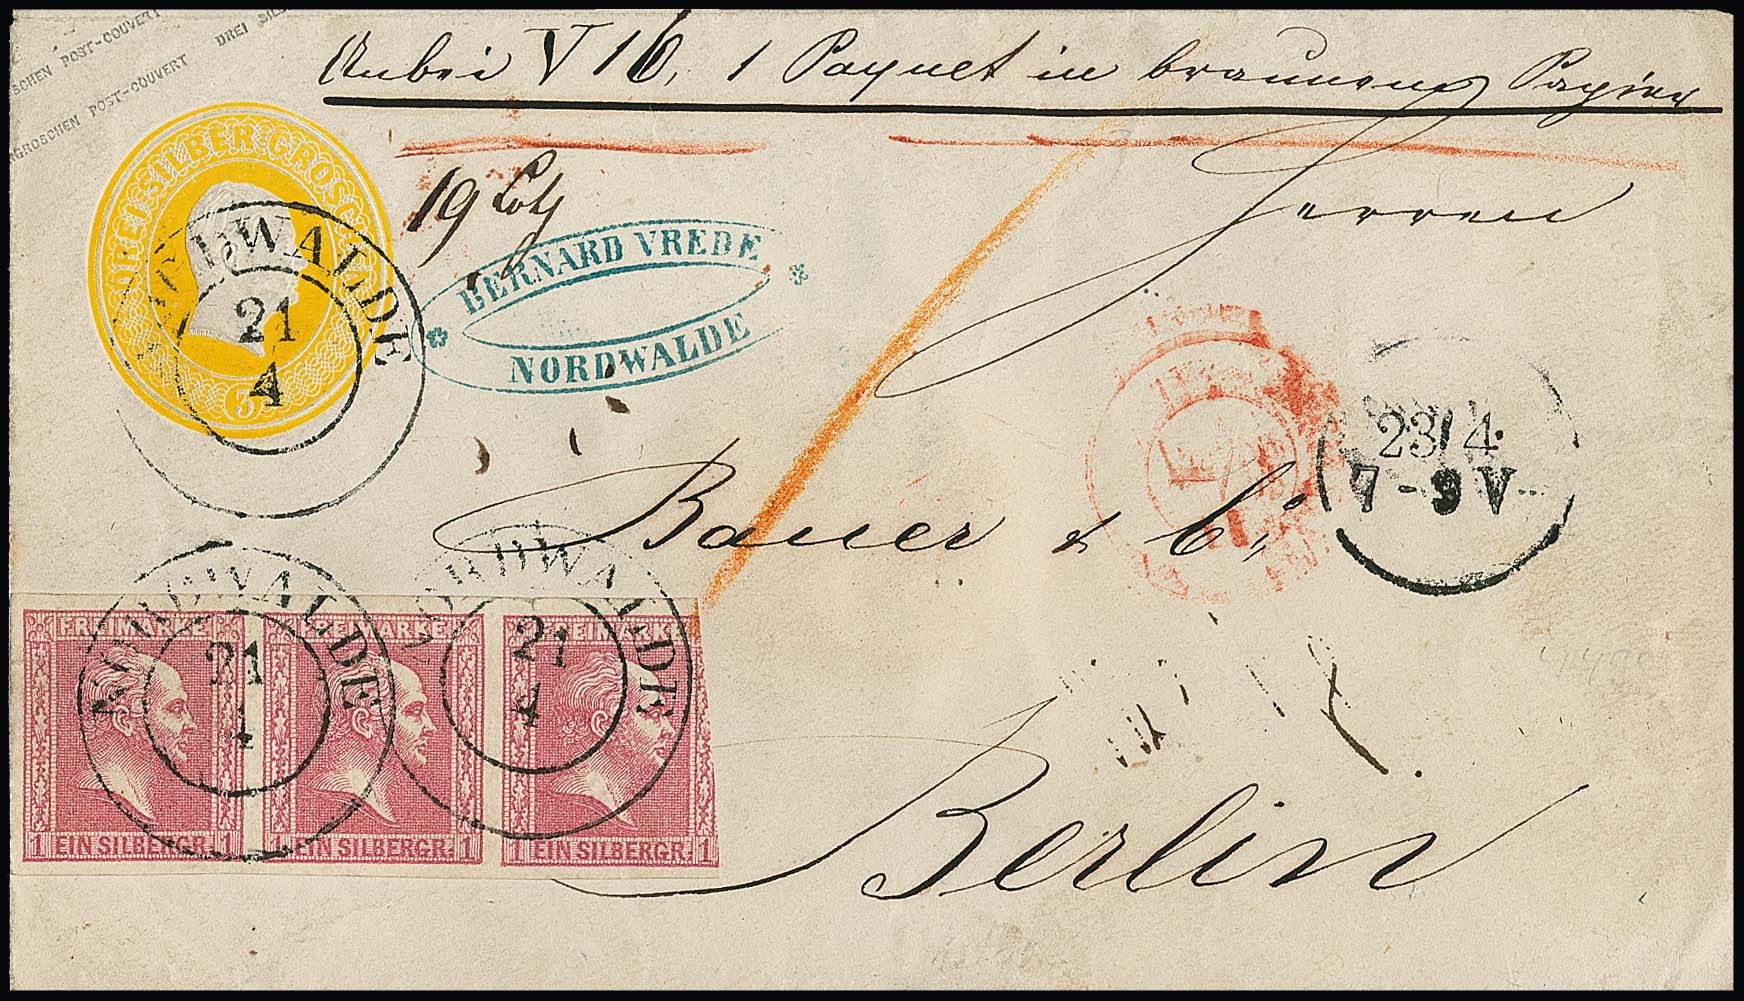 SCHEN POST-COUVERT
GROSCHEN POST-COUVERT DREI SIL
Anbei V 16, 1 Paquet in braunem Papier
DREI SILBER GROSCHEN
3
NORDWALDE
21
4
19 Loth
BERNARD VREDE
NORDWALDE
Herren
Bauer & Co
23/4
7-9 V
Berlin
NORDWALDE
21
4
NORDWALDE
21
4
FREIMARKE
1 EIN SILBERGR. 1
FREIMARKE
1 EIN SILBERGR. 1
FREIMARKE
1 EIN SILBERGR. 1